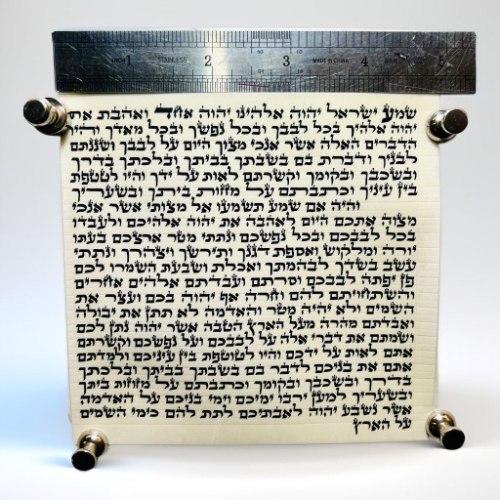 INCH 1 STAINLESS 2 3 MADE IN CHINA 4 5
שמע ישראל יהוה אלהינו יהוה אחד ואהבת את
יהוה אלהיך בכל לבבך ובכל נפשך ובכל מאדך והיו
הדברים האלה אשר אנכי מצוך היום על לבבך ושננתם
לבניך ודברת בם בשבתך בביתך ובלכתך בדרך
ובשכבך ובקומך וקשרתם לאות על ידך והיו לטטפת
בין עיניך וכתבתם על מזזות ביתך ובשעריך
והיה אם שמע תשמעו אל מצותי אשר אנכי
מצוה אתכם היום לאהבה את יהוה אלהיכם ולעבדו
בכל לבבכם ובכל נפשכם ונתתי מטר ארצכם בעתו
יורה ומלקוש ואספת דגנך ותירשך ויצהרך ונתתי
עשב בשדך לבהמתך ואכלת ושבעת השמרו לכם
פן יפתה לבבכם וסרתם ועבדתם אלהים אחרים
והשתחויתם להם וחרה אף יהוה בכם ועצר את
השמים ולא יהיה מטר והאדמה לא תתן את יבולה
ואבדתם מהרה מעל הארץ הטבה אשר יהוה נתן לכם
ושמתם את דברי אלה על לבבכם ועל נפשכם וקשרתם
אתם לאות על ידכם והיו לטוטפת בין עיניכם ולמדתם
אתם את בניכם לדבר בם בשבתך בביתך ובלכתך
בדרך ובשכבך ובקומך וכתבתם על מזוזות ביתך
ובשעריך למען ירבו ימיכם וימי בניכם על האדמה
אשר נשבע יהוה לאבתיכם לתת להם כימי השמים
על הארץ